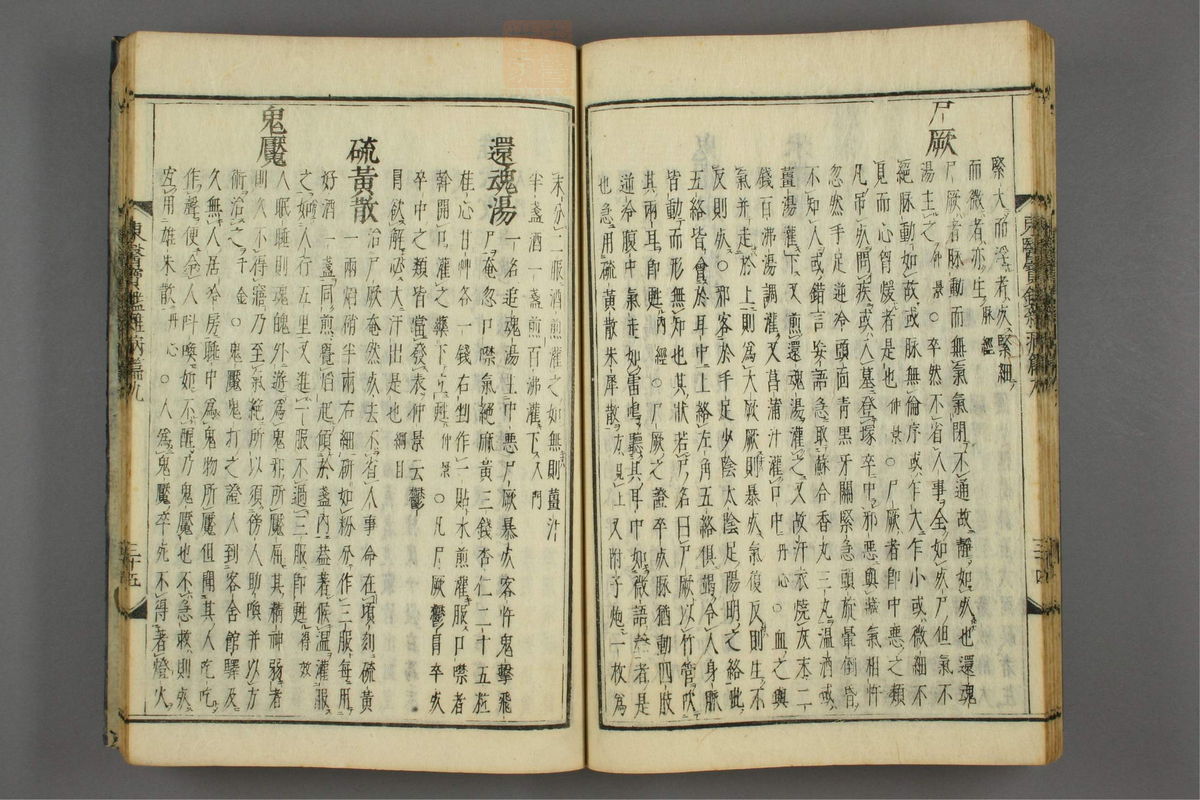 緊大而浮者死緊細
而微者亦生脉經
尸厥
尸厥者脉動而無氣氣閉不通故靜如死也還魂
湯主之仲景○卒然不省人事全如死尸但氣不
絕脉動如故或脉無倫序或乍大乍小或微細不
見而心胷煖者是也仲景○尸厥者卽中惡之類
凡吊死問疾或入墓登塚卒中邪惡與藏氣相忤
忽然手足逆冷頭面青黑牙關緊急頭旋暈倒昏
不知人或錯言妄語急取蘇合香丸三丸溫酒或
薑湯灌下又煎還魂湯灌之又故汗衣燒灰末二
錢百沸湯調灌又菖蒲汁灌口中丹心○血之與
氣并走於上則爲大厥厥則暴死氣復反則生不
反則死○邪客於手足少陰太陰足陽明之絡此
五絡皆會於耳中上絡左角五絡俱竭令人身脈
皆動而形無知也其狀若尸名曰尸厥以竹管吹
其兩耳卽甦內經○尸厥之證卒死脈猶動四肢
逆冷腹中氣走如雷鳴聽其耳中如微語聲者是
也急用硫黃散朱犀散方見上又附子炮一枚爲
末分二服酒煎灌之如無則薑汁
半盞酒一盞煎百沸灌下入門
還魂湯
一名追魂湯主中惡尸厥暴死客忤鬼擊飛
尸奄忽口噤氣絕麻黃三錢杏仁二十五粒
桂心甘草各一錢右剉作一貼水煎灌服口噤者
斡開口灌藥下立甦仲景○凡尸厥鬱冒卒死
卒中之類皆當發表仲景云鬱
冒欲解必大汗出是也綱目
硫黃散
治尸厥奄然死去不省人事命在頃刻硫黃
一兩焰硝半兩右細硏如粉分作三服每用
好酒一盞同煎覺焰起傾於盞內蓋著候溫灌服
之如人行五里又進一服不過三服卽甦得效
鬼魘
人眠睡則魂魄外遊爲鬼邪所魘屈其精神弱者
則久不得寤乃至氣絕所以須傍人助喚并以方
術治之千金○鬼魘鬼打之證人到客舍館驛及
久無人居冷房睡中爲鬼物所魘但聞其人吃吃
作聲便令人叫喚如不醒乃鬼魘也不急救則死
宜用雄朱散丹心○人爲鬼魘卒死不得著燈火
東醫寶鑑雜病篇九
三十四
東醫寶鑑雜病篇九
三十五